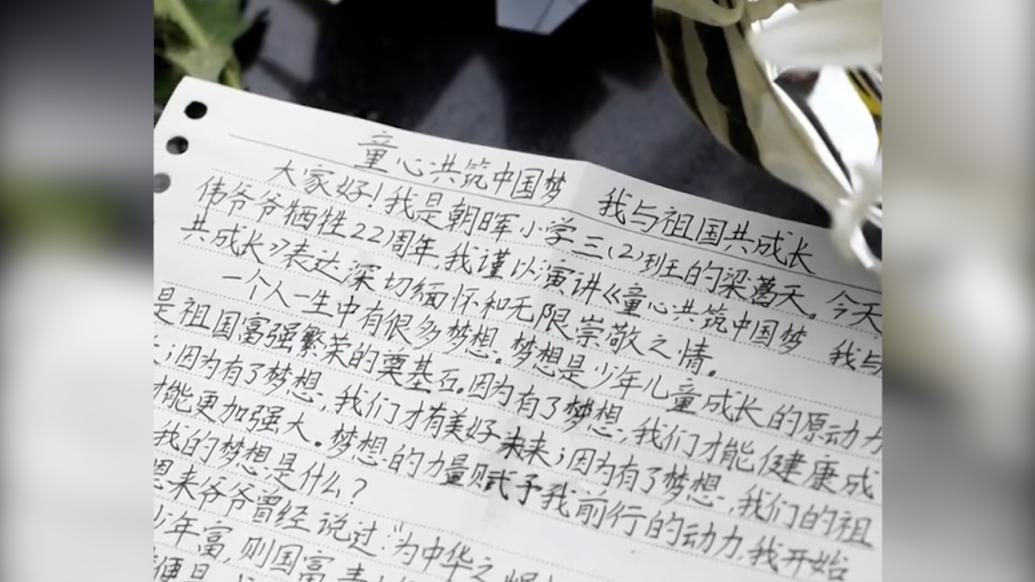 童心共筑中国梦 我与祖国共成长
大家好!我是朝晖小学三(2)班的梁蕅天。今天
伟爷爷牺牲22周年,我谨以演讲《童心共筑中国梦 我与
共成长》表达深切缅怀和无限崇敬之情。
一个人一生中有很多梦想。梦想是少年儿童成长的原动力
是祖国富强繁荣的奠基石。因为有了梦想,我们才能健康成
长;因为有了梦想,我们才有美好未来;因为有了梦想,我们的祖
才能更加强大。梦想的力量赋予我前行的动力,我开始
我的梦想是什么?
恩来爷爷曾经说过:"为中华之
少年富,则国富